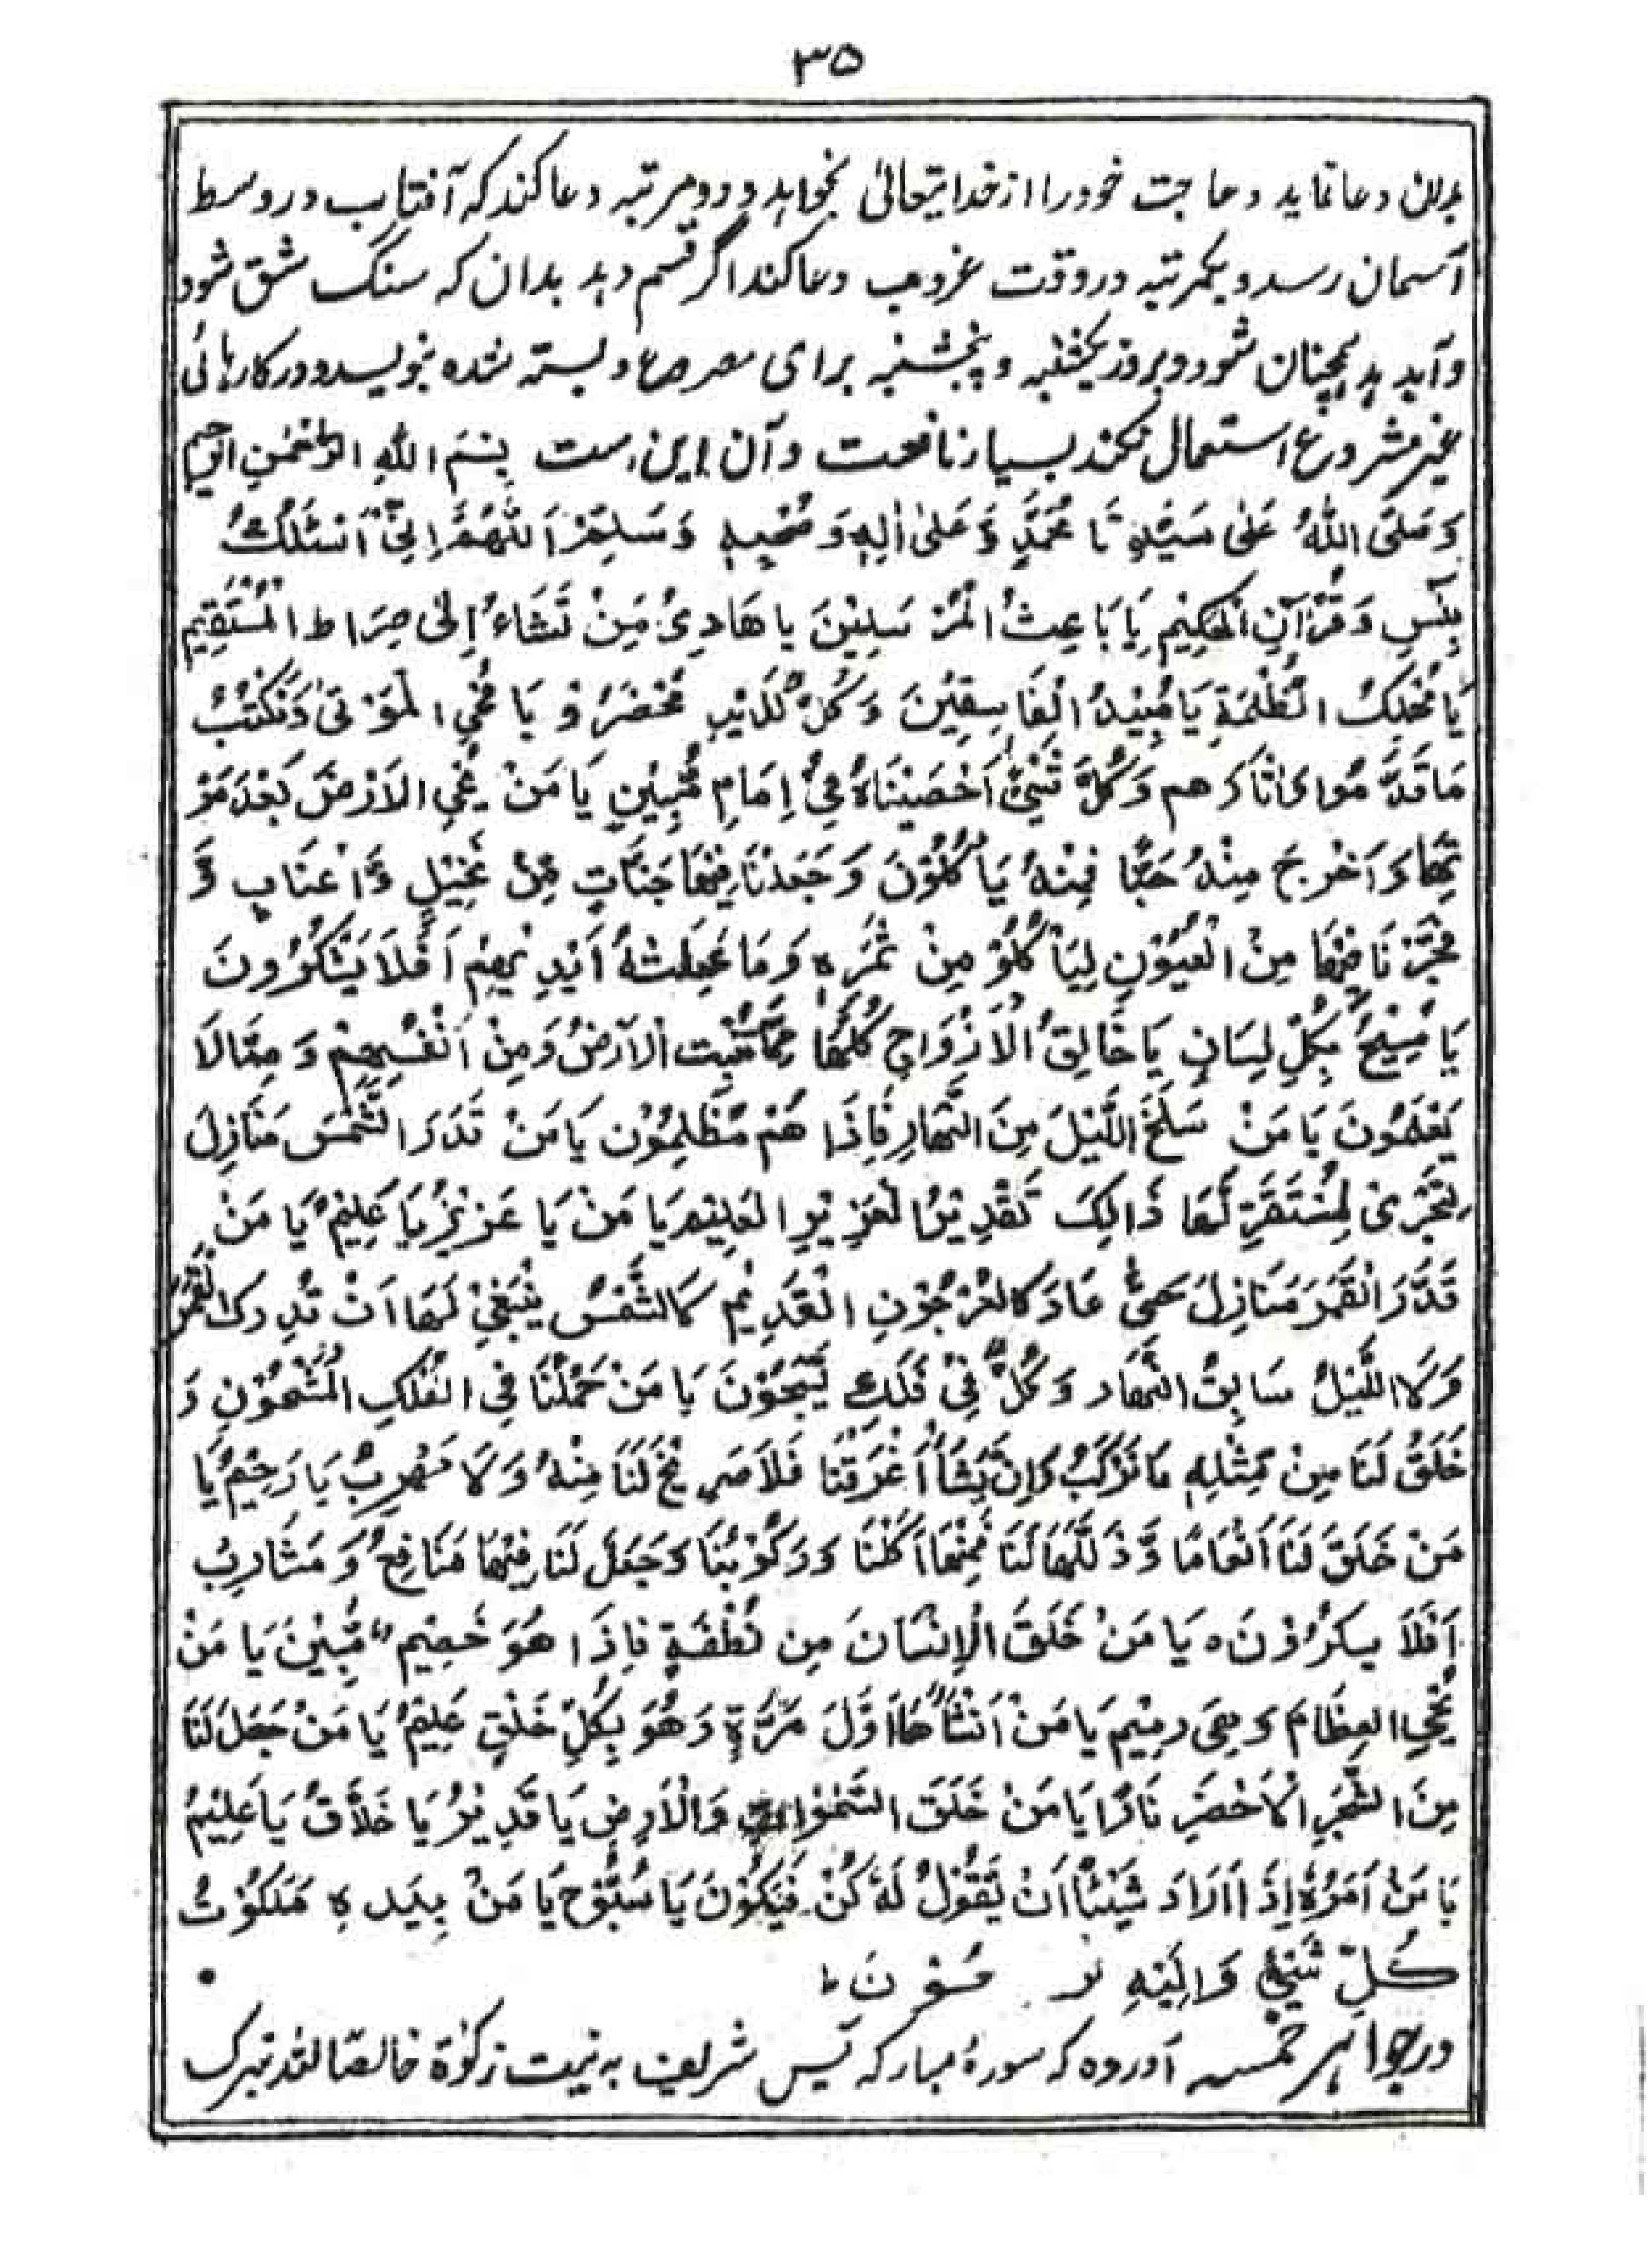 ۳۵
بدان دعا نماید و حاجت خود را از خدایتعالیٰ بخواهد و دو مرتبه دعا کند که آفتاب در وسط
آسمان رسد و یکمرتبه در وقت غروب دعا کند اگر قسم دهد بدان که سنگ شق شود
و آید بد همچنان شود و بروز یکشنبه و پنجشنبه برای مصروع و بسته شده بنویسد و در کارهائی
غیر مشروع استعمال نکند بسیار نافعت و آن این است بِسْمِ اللهِ الرَّحْمٰنِ الرَّحِیْمِ
وَصَلَّی اللهُ عَلٰی سَیِّدِنَا مُحَمَّدٍ وَّعَلٰی اٰلِهٖ وَصَحْبِهٖ وَسَلِّمْ اَللّٰهُمَّ اِنِّیْ اَسْئَلُكَ
بِیٰسٓ وَقُرْآنِ الْحَکِیْمِ یَا بَاعِثُ الْمُرْسَلِیْنَ یا هَادِیُ مَنْ تَشَاءُ اِلٰی صِرَاطِ الْمُسْتَقِیْمِ
یَا مُهْلِكُ الظُّلْمَةِ یَا مُبِیْدُ الْفَاسِقِیْنَ وَکُلٌّ لَدَیْهِ مُحْضَرُوْ یَا مُحْیِ الْمَوْتٰی وَنَکْتُبُ
مَا قَدَّمُوا وَاٰثَارَهم وَکُلَّ شَیْئٍ اَحْصَیْنَاهُ فِیْ اِمَامٍ مُّبِیْنٍ یَا مَنْ یُحْیِ الاَرْضَ بَعْدَ مَوْ
تِهَا وَاَخْرَجَ مِنْهُ حَبًّا فَمِنْهُ یَاْکُلُوْنَ وَجَعَلْنَا فِیْهَا جَنَّاتٍ مِّنْ نَّخِیْلٍ وَّاَعْنَابٍ وَّ
فَجَّرْنَا فِیْهَا مِنْ الْعُیُوْنِ لِیَاْکُلُوْ مِنْ ثَمَرِهٖ وَمَا عَمِلَتْهُ اَیْدِیْهِمْ اَفَلَا یَشْکُرُونَ
یَا مُسَبَّحُ بِکُلِّ لِسَانٍ یَا خَالِقُ الْاَزْوَاجِ کُلِّهَا مِمَّا تُنْبِت الْاَرْضُ وَمِنْ اَنْفُسِهِمْ وَمِمَّالَا
یَعْلَمُونَ یَا مَنْ سَلَخَ اللَّیْلَ مِنَ النَّهَارِ فَاِذَا هُمْ مُّظْلِمُوْن یَا مَنْ قَدَرَ الشَّمْسَ مَنَازِلَ
لِتَجْرِیْ لِمُسْتَقَرٍّ لَّهَا ذَالِكَ تَقْدِیْرُ الْعَزِیْزِ العَلِیْم یَا مَنْ یَا عَزِیْزُ یَا عَلِیْمُ یَا مَنْ
قَدَّرَ الْقَمَرَ مَنَازِلَ حَتّٰی عَادَ کَالْعُرْجُوْنِ الْقَدِیْمِ کَالشَّمْسُ یَنْبَغِیْ لَهَا اَنْ تُدْرِك الْقَمَرَ
وَلَا اللَّیْلُ سَابِقُ النَّهَار وَکُلٌّ فِیْ فَلَكٍ یَّسْبَحُوْنَ یَا مَنْ حَمَلْنَا فِی الْفُلْكِ الْمَشْحُوْنِ وَ
خَلَقَ لَنَا مِنْ مِّثْلِهٖ مَا نَرْکَبُ وَاِنْ یَّشَأْ اَغْرَقْنَا فَلَا صَرِیْخَ لَنَا مِنْهُ وَلَا مَهْرِبُ یَا رَحِیْمُ یَا
مَنْ خَلَقَ لَنَا اَنْعَامًا وَّذَلَّلَهَا لَنَا فَمِنْهَا اَکَلْنَا وَرَکُوْبُنَا وَجَعَلَ لَنَا فِیْهَا مَنَافِعُ وَمَشَارِبُ
اَفَلَا یَشکُرُوْنَ ه یَا مَنْ خَلَقَ الْاِنْسَانَ مِن نُطْفَةٍ فَاِذَا هُوَ خَصِیْمٌ مُّبِیْنَ یَا مَنْ
یُّحْیِ العِظَامَ وَهِیَ رمِیْم یَا مَنْ اَنْشَأَهَا اَوَّلَ مَرَّةٍ وَهُوَ بِکُلِّ خَلْقٍ عَلِیْمُ یَا مَنْ جَعَلَ لَنَا
مِنَ الشَّجَرِ الْاَخْضَرِ نَارًا یَا مَنْ خَلَقَ السَّمٰوٰاتِ وَالْاَرْضِ یَا قَدِیْرُ یَا خَلَّاقُ یَا عَلِیْمُ
یَا مَنْ اَمَرُهُ اِذَا اَرَادَ شَیْئًا اَنْ یَّقُوْلُ لَهٗ کُنْ فَیَکُوْنَ یَا سُبُّوْحُ یَا مَنْ بِیَدِهٖ مَلَکُوْتُ
کُلِّ شَیْئٍ وَاِلَیْهِ
در جواهر خمسه آورده که سورهٔ مبارکه یٰس شریف به نیت زکوٰة خالصًا لله تبرک